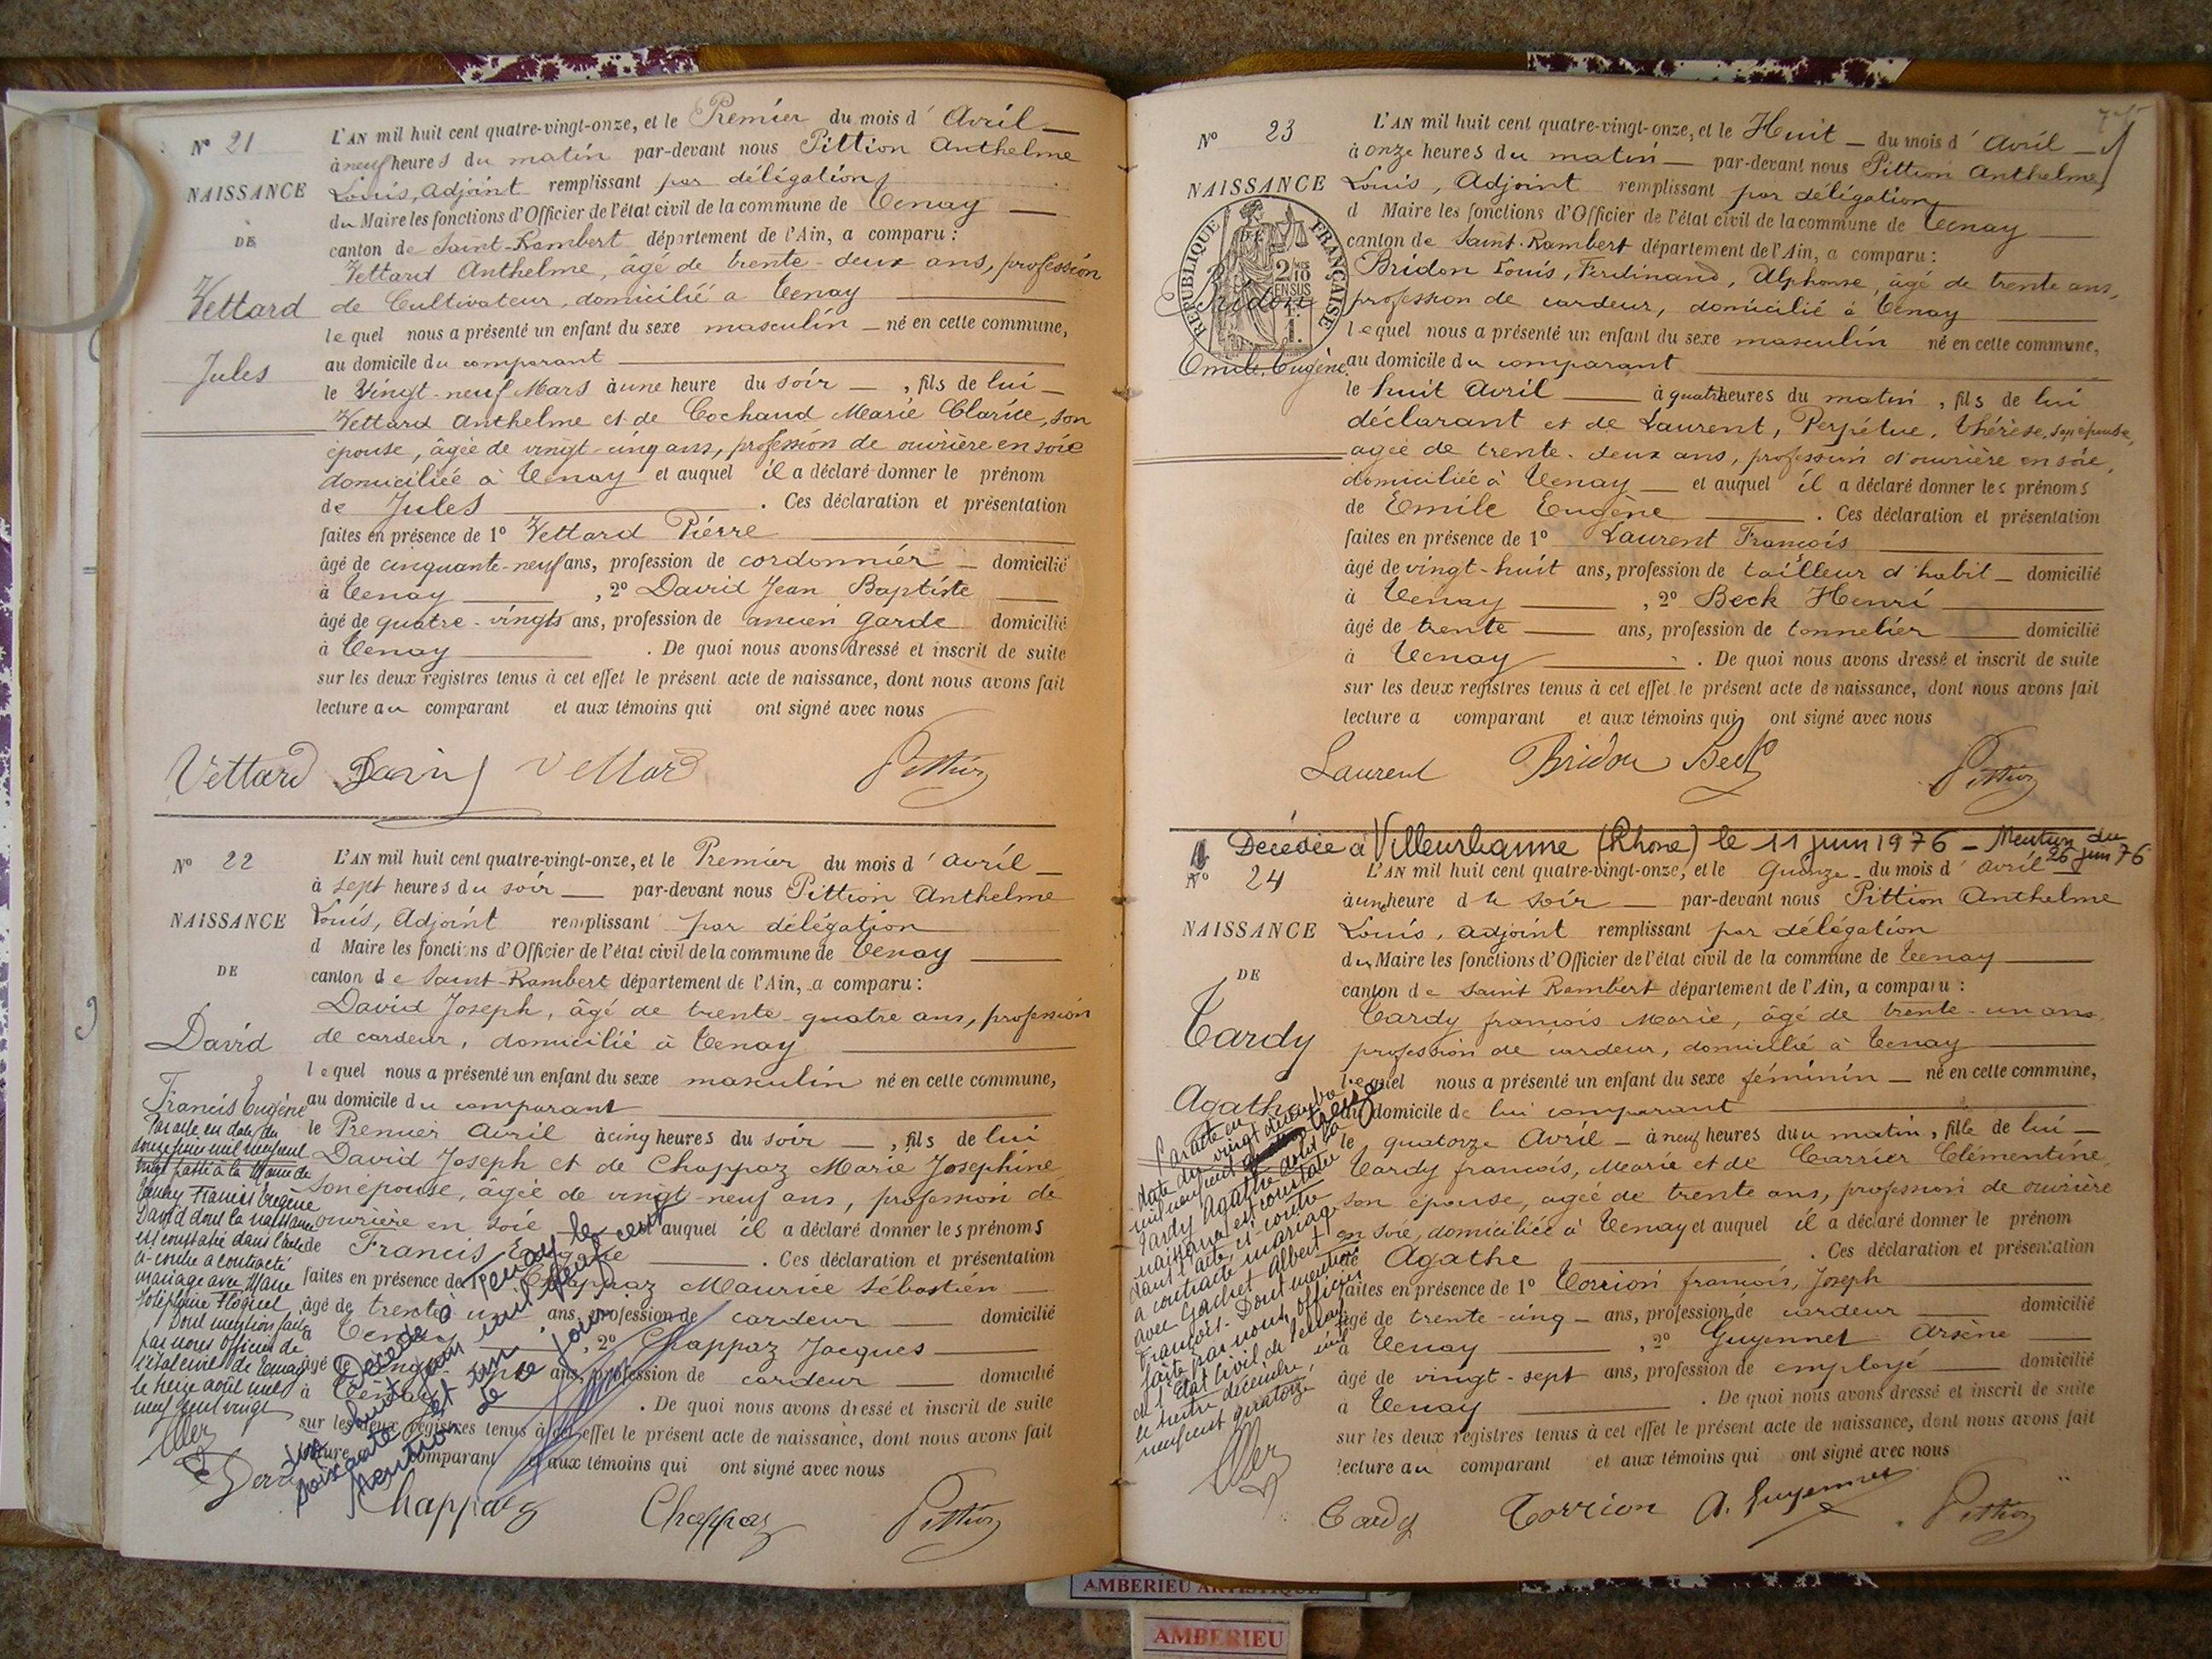 N° 21
NAISSANCE
DE
Vettard
Jules
L'AN mil huit cent quatre-vingt-onze, et le Premier du mois d' Avril
à neuf heures du matin par-devant nous Pittion Anthelme
Louis, Adjoint remplissant par délégation
du Maire les fonctions d'Officier de l'état civil de la commune de Tenay
canton de Saint-Rambert département de l'Ain, a comparu :
Vettard Anthelme, âgé de trente-deux ans, profession
de Cultivateur, domicilié à Tenay
lequel nous a présenté un enfant du sexe masculin né en cette commune,
au domicile du comparant
le Vingt-neuf Mars à une heure du soir, fils de lui
Vettard Anthelme et de Cochand Marie Clarice, son
épouse, âgée de vingt-cinq ans, profession de ouvrière en soie
domiciliée à Tenay et auquel il a déclaré donner le prénom
de Jules . Ces déclaration et présentation
faites en présence de 1° Vettard Pierre
âgé de cinquante-neuf ans, profession de cordonnier domicilié
à Tenay , 2° David Jean Baptiste
âgé de quatre-vingts ans, profession de ancien garde domicilié
à Tenay . De quoi nous avons dressé et inscrit de suite
sur les deux registres tenus à cet effet le présent acte de naissance, dont nous avons fait
lecture au comparant et aux témoins qui ont signé avec nous
Vettard David Vettard Pittion
N° 22
NAISSANCE
DE
David
Francis Eugène
L'AN mil huit cent quatre-vingt-onze, et le Premier du mois d' avril
à sept heures du soir par-devant nous Pittion Anthelme
Louis, Adjoint remplissant par délégation
d Maire les fonctions d'Officier de l'état civil de la commune de Tenay
canton de Saint-Rambert département de l'Ain, a comparu :
David Joseph, âgé de trente-quatre ans, profession
de cardeur, domicilié à Tenay
lequel nous a présenté un enfant du sexe masculin né en cette commune,
au domicile du comparant
le Premier Avril à cinq heures du soir, fils de lui
David Joseph et de Chappaz Marie Josephine
son épouse, âgée de vingt-neuf ans, profession de
ouvrière en soie et auquel il a déclaré donner les prénoms
de Francis Eugène . Ces déclaration et présentation
faites en présence de 1° Chappaz Maurice Sébastien
âgé de trente un ans, profession de cardeur domicilié
à Tenay , 2° Chappaz Jacques
âgé de ans, profession de cardeur domicilié
à Tenay . De quoi nous avons dressé et inscrit de suite
sur les deux registres tenus à cet effet le présent acte de naissance, dont nous avons fait
lecture comparant et aux témoins qui ont signé avec nous
Par acte en date du
douze juin mil neuf cent
vingt passé à la Mairie de
Tenay Francis Eugène
David dont la naissance
est constatée dans l'acte
ci-contre a contracté
mariage avec Marie
Joséphine
Dont mention faite
par nous Officier de
l'état civil de Tenay
le treize août mil
neuf cent vingt
Décédé à Tenay le
huit juin mil neuf cent
soixante et un.
Mention de ce jour
Chappaz Chappaz Pittion
N° 23
NAISSANCE
RÉPUBLIQUE FRANÇAISE
2 10
EN SUS
Bridon
Emile, Eugène
L'AN mil huit cent quatre-vingt-onze, et le Huit du mois d' Avril
à onze heures du matin par-devant nous Pittion Anthelme
Louis, Adjoint remplissant par délégation
d Maire les fonctions d'Officier de l'état civil de la commune de Tenay
canton de Saint-Rambert département de l'Ain, a comparu :
Bridon Louis, Ferdinand, Alphonse, âgé de trente ans,
profession de cardeur, domicilié à Tenay
lequel nous a présenté un enfant du sexe masculin né en cette commune,
au domicile du comparant
le huit Avril à quatre heures du matin, fils de lui
déclarant et de Laurent, Perpétue, Thérèse, son épouse,
agée de trente-deux ans, profession d'ouvrière en soie,
domiciliée à Tenay et auquel il a déclaré donner les prénoms
de Emile Eugène . Ces déclaration et présentation
faites en présence de 1° Laurent François
âgé de vingt-huit ans, profession de tailleur d'habit domicilié
à Tenay , 2° Beck Henri
âgé de trente ans, profession de tonnelier domicilié
à Tenay . De quoi nous avons dressé et inscrit de suite
sur les deux registres tenus à cet effet le présent acte de naissance, dont nous avons fait
lecture a comparant et aux témoins qui ont signé avec nous
Laurent Bridon Beck Pittion
Décédée à Villeurbanne (Rhône) le 11 juin 1976 – Mention du
26 juin 76
N° 24
NAISSANCE
DE
Tardy
Agathe
L'AN mil huit cent quatre-vingt-onze, et le Quinze du mois d' avril
à une heure du soir par-devant nous Pittion Anthelme
Louis, adjoint remplissant par délégation
du Maire les fonctions d'Officier de l'état civil de la commune de Tenay
canton de Saint Rambert département de l'Ain, a comparu :
Tardy françois Marie, âgé de trente-un ans
profession de cardeur, domicilié à Tenay
lequel nous a présenté un enfant du sexe féminin né en cette commune,
au domicile de lui comparant
le quatorze Avril à neuf heures du matin, fille de lui
Tardy françois, Marie et de Carrier Clémentine
son épouse, agée de trente ans, profession de ouvrière
en soie, domiciliée à Tenay et auquel il a déclaré donner le prénom
de Agathe . Ces déclaration et présentation
faites en présence de 1° Torrion françois, Joseph
âgé de trente-cinq ans, profession de cardeur domicilié
à Tenay , 2° Guyennet Arsène
âgé de vingt-sept ans, profession de employé domicilié
à Tenay . De quoi nous avons dressé et inscrit de suite
sur les deux registres tenus à cet effet le présent acte de naissance, dont nous avons fait
lecture au comparant et aux témoins qui ont signé avec nous
Par acte en
date du vingt décembre
mil neuf cent treize
Tardy Agathe dont la
naissance est constatée
dans l'acte ci-contre
a contracté mariage
avec Gachet Albert
François. Dont mention
faite par nous, officier
de l'Etat Civil de Tenay
le trente décembre, mil
neuf cent quatorze
Tardy Torrion A. Guyennet Pittion
AMBERIEU ARTISTIQUE
AMBERIEU